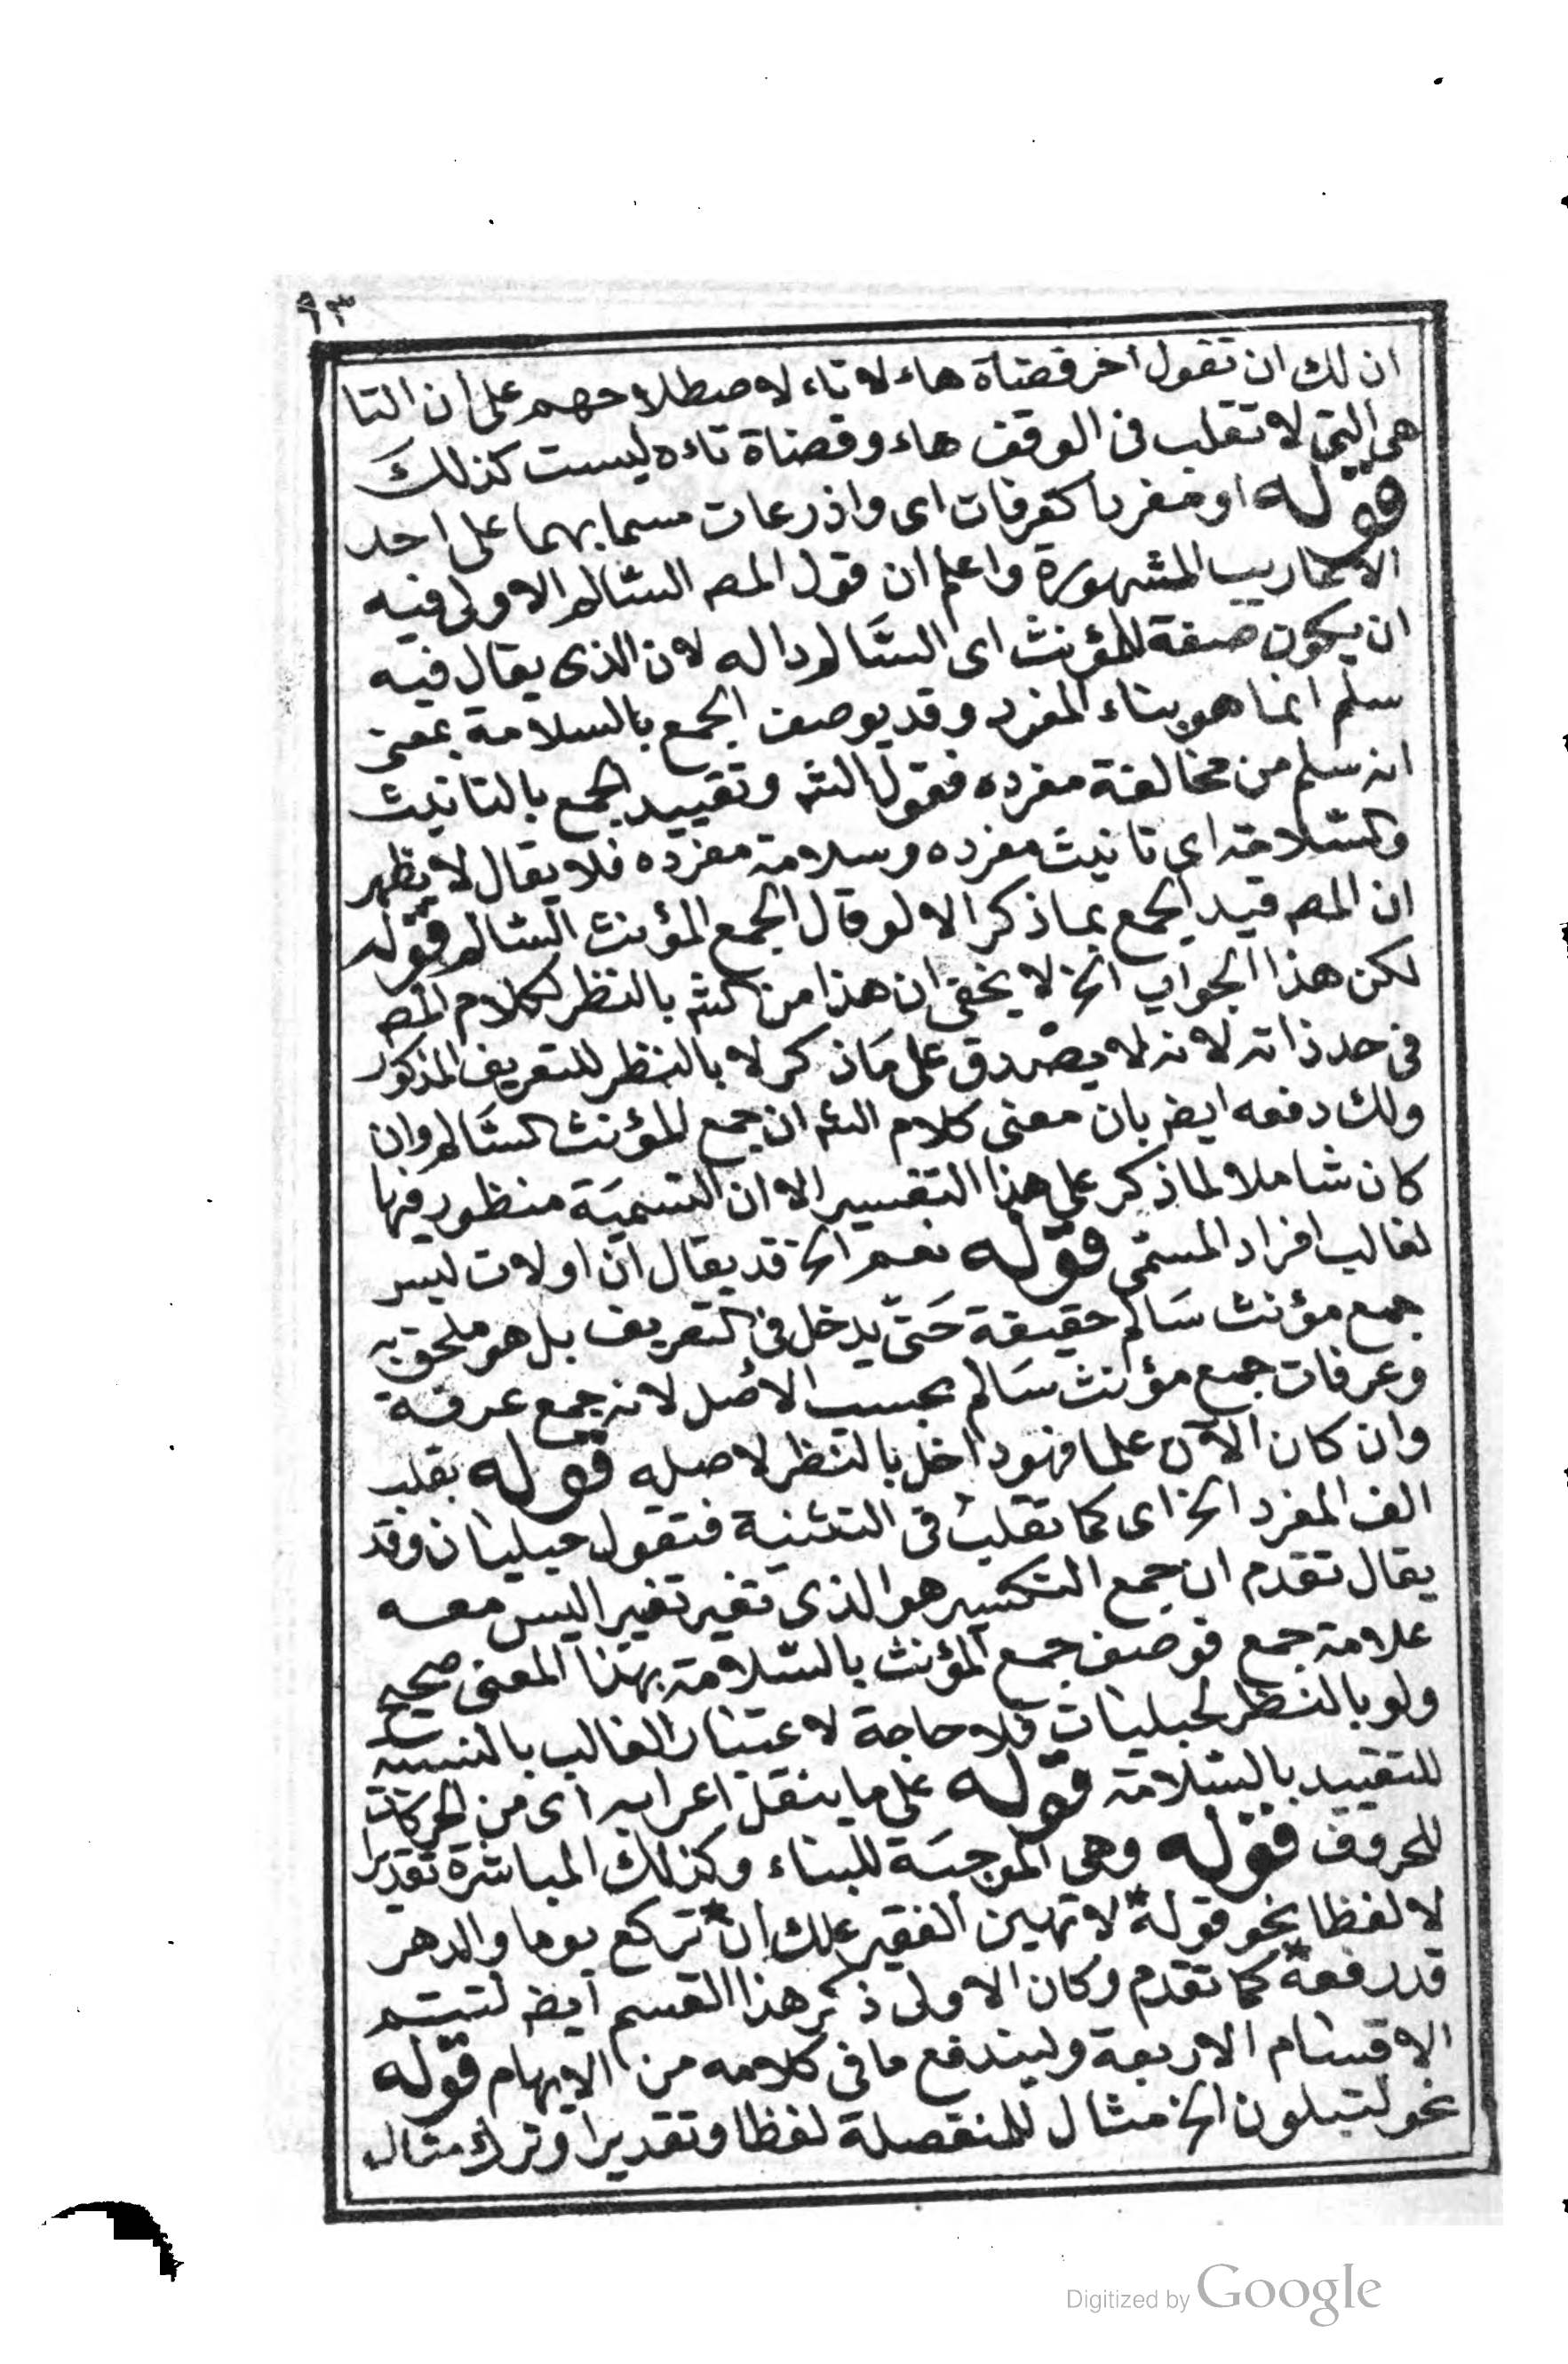 ٩٣
ان لك ان تقول اخر قضاة هاء لا تاء لاصطلاحهم على ان التا
هى التى لا تقلب فى الوقف هاء وقضاة تاءه ليست كذلك
قوله او مفردا كعرفات اى واذرعات مسما بهما على احد
الاعاريب المشهورة واعلم ان قول المصـ السالم الاولى فيه
ان يكون صفة للمؤنث اى السالم داله لان الذى يقال فيه
سلم انما هو بناء المفرد وقد يوصف الجمع بالسلامة بمعنى
انه سلم من مخالفة مفرده فقول الشـ وتقييد الجمع بالتانيث
والسلامة اى تانيث مفرده وسلامة مفرده فلا يقال لا يظهر
ان المصـ قيد الجمع بما ذكر الا لو قال الجمع المؤنث السالم قوله
لكن هذا الجواب الخ لا يخفى ان هذا من الشـ بالنظر لكلام المصـ
فى حد ذاته لانه لا يصدق على ما ذكر لا بالنظر للتعريف المذكور
ولك دفعه ايضـ بان معنى كلام الشـ ان جمع المؤنث السالم وان
كان شاملا لما ذكر على هذا التفسير الا ان التسمية منظور فيها
لغالب افراد المسمى قوله نعم الخ قد يقال ان اولات ليس
جمع مؤنث سالم حقيقة حتى يدخل فى التعريف بل هو ملحق به
وعرفات جمع مؤنث سالم بحسب الاصل لانه جمع عرفة
وان كان الآن علما فهو داخل بالنظر لاصله قوله بقلب
الف المفرد الخ اى كما تقلب فى التثنية فتقول حبليان وقد
يقال تقدم ان جمع التكسير هو الذى تغير تغيرا ليس معه
علامة جمع فوصف جمع المؤنث بالسلامة بهذا المعنى صحيح
ولو بالنظر لحبليات فلا حاجة لاعتبار الغالب بالنسبة
للتقييد بالسلامة قوله على ما ينقل اعرابه اى من الحركات
للحروف قوله وهى الموجبة للبناء وكذلك المباشرة تقديرا
لا لفظا نحو قوله * لا تهين الفقير علك ان * تركع يوما والدهر
قد رفعه * كما تقدم وكان الاولى ذكر هذا القسم ايضـ لتتم
الاقسام الاربعة وليندفع ما فى كلامه من الايهام قوله
نحو لتبلون الخ مثال للمنفصلة لفظا وتقديرا وترك مثال
Digitized by Google